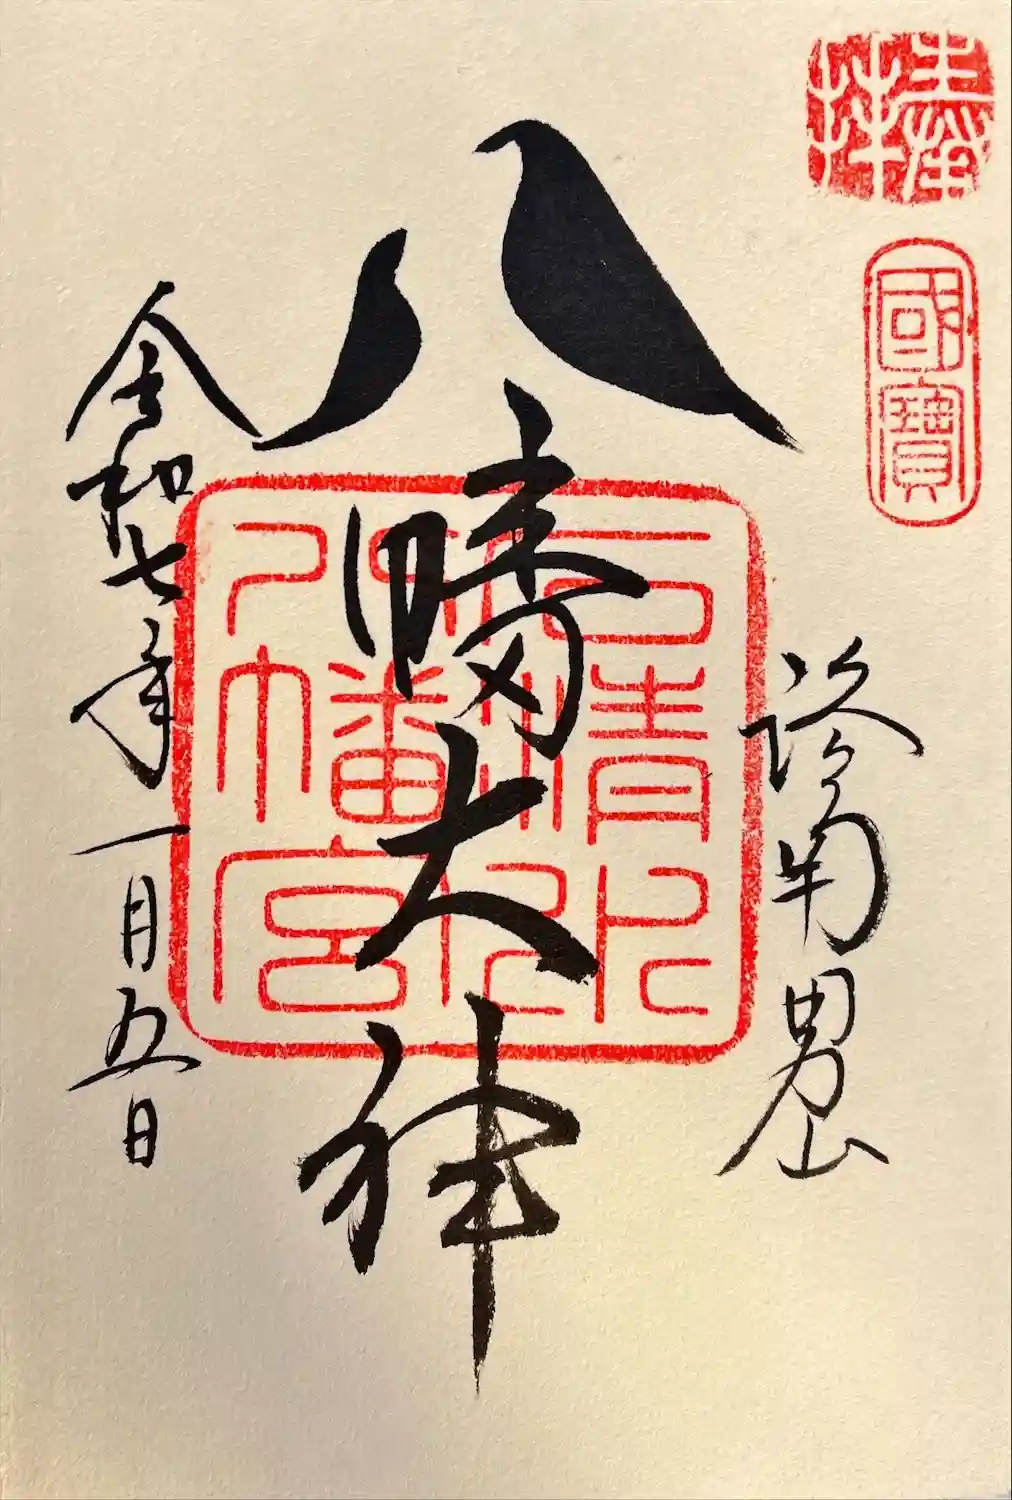 奉拝
國寶
洛南男山
八幡大神
石清水八幡宮
令和七年一月五日